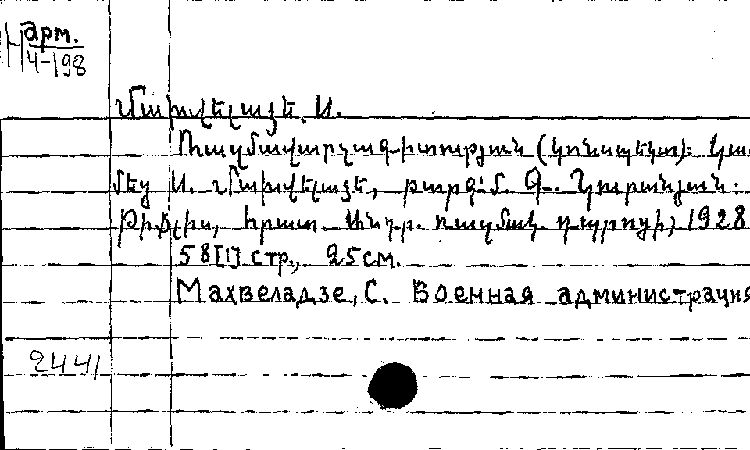 арм.
4-198
Մախվելաձե, Ս.
Ռազմավարչագիտության (կոնսպեկտ): Կազ
մեց Ս. Մախվելաձե, թարգմ. Գ.
Թիֆլիս, հրատ. Անդր. ռազմակ. դպրոցի, 1928
58[1] стр., 25 см.
Махвеладзе, С. Военная администрация
2441